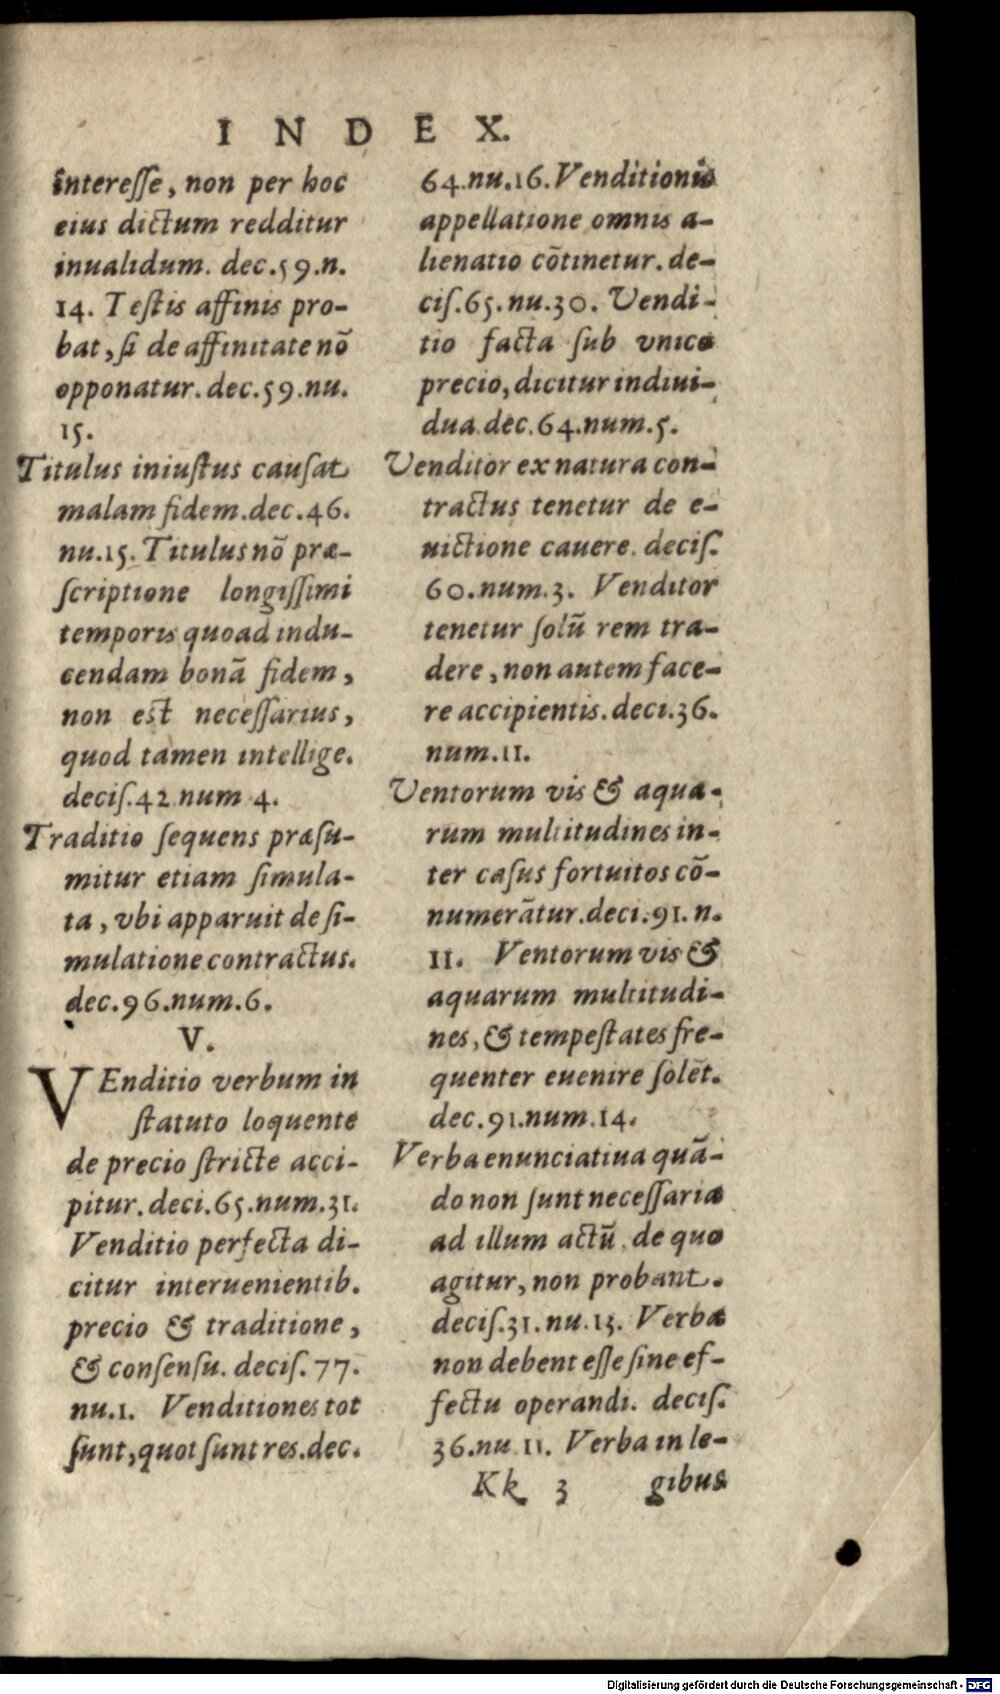 INDEX.
interesse, non per hoc
eius dictum redditur
inualidum. dec. 59. n.
14. Testis affinis pro-
bat, si de affinitate nõ
opponatur. dec. 59. nu.
15.
Titulus iniustus causat
malam fidem. dec. 46.
nu. 15. Titulus nõ præ-
scriptione longissimi
temporis quoad indu-
cendam bonã fidem,
non est necessarius,
quod tamen intellige.
decis. 42 num 4.
Traditio sequens præsu-
mitur etiam simula-
ta, vbi apparuit de si-
mulatione contractus.
dec. 96. num. 6.
V.
VEnditio verbum in
statuto loquente
de precio stricte acci-
pitur. deci. 65. num. 31.
Venditio perfecta di-
citur interuenientib.
precio & traditione,
& consensu. decis. 77.
nu. 1. Venditiones tot
sunt, quot sunt res. dec.
64. nu. 16. Venditionis
appellatione omnis a-
lienatio cõtinetur. de-
cis. 65. nu. 30. Vendi-
tio facta sub vnico
precio, dicitur indiui-
dua dec. 64. num. 5.
Venditor ex natura con-
tractus tenetur de e-
uictione cauere. decis.
60. num. 3. Venditor
tenetur solũ rem tra-
dere, non autem face-
re accipientis. deci. 36.
num. 11.
Ventorum vis & aqua-
rum multitudines in-
ter casus fortuitos cõ-
numerãtur. deci. 91. n.
11. Ventorum vis &
aquarum multitudi-
nes, & tempestates fre-
quenter euenire solẽt.
dec. 91. num. 14.
Verba enunciatiua quã-
do non sunt necessaria
ad illum actũ, de quo
agitur, non probant.
decis. 31. nu. 13. Verba
non debent esse sine ef-
fectu operandi. decis.
36. nu 11. Verba in le-
Kk 3 gibus
Digitalisierung gefördert durch die Deutsche Forschungsgemeinschaft - DFG